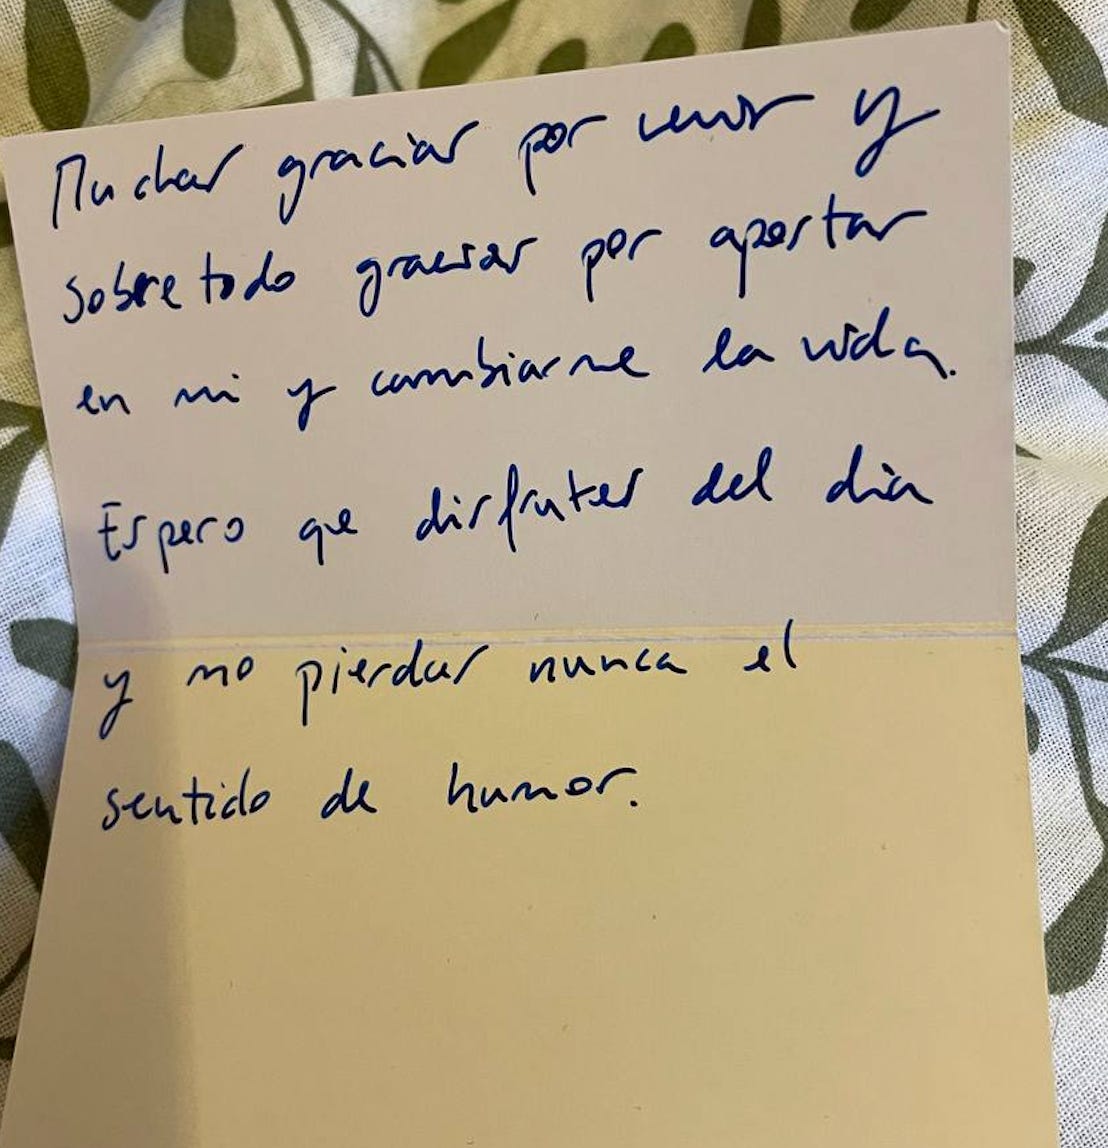 Muchas gracias por venir y
sobre todo gracias por aportar
en mi y cambiarme la vida.
Espero que disfrutes del dia
y no pierdas nunca el
sentido de humor.